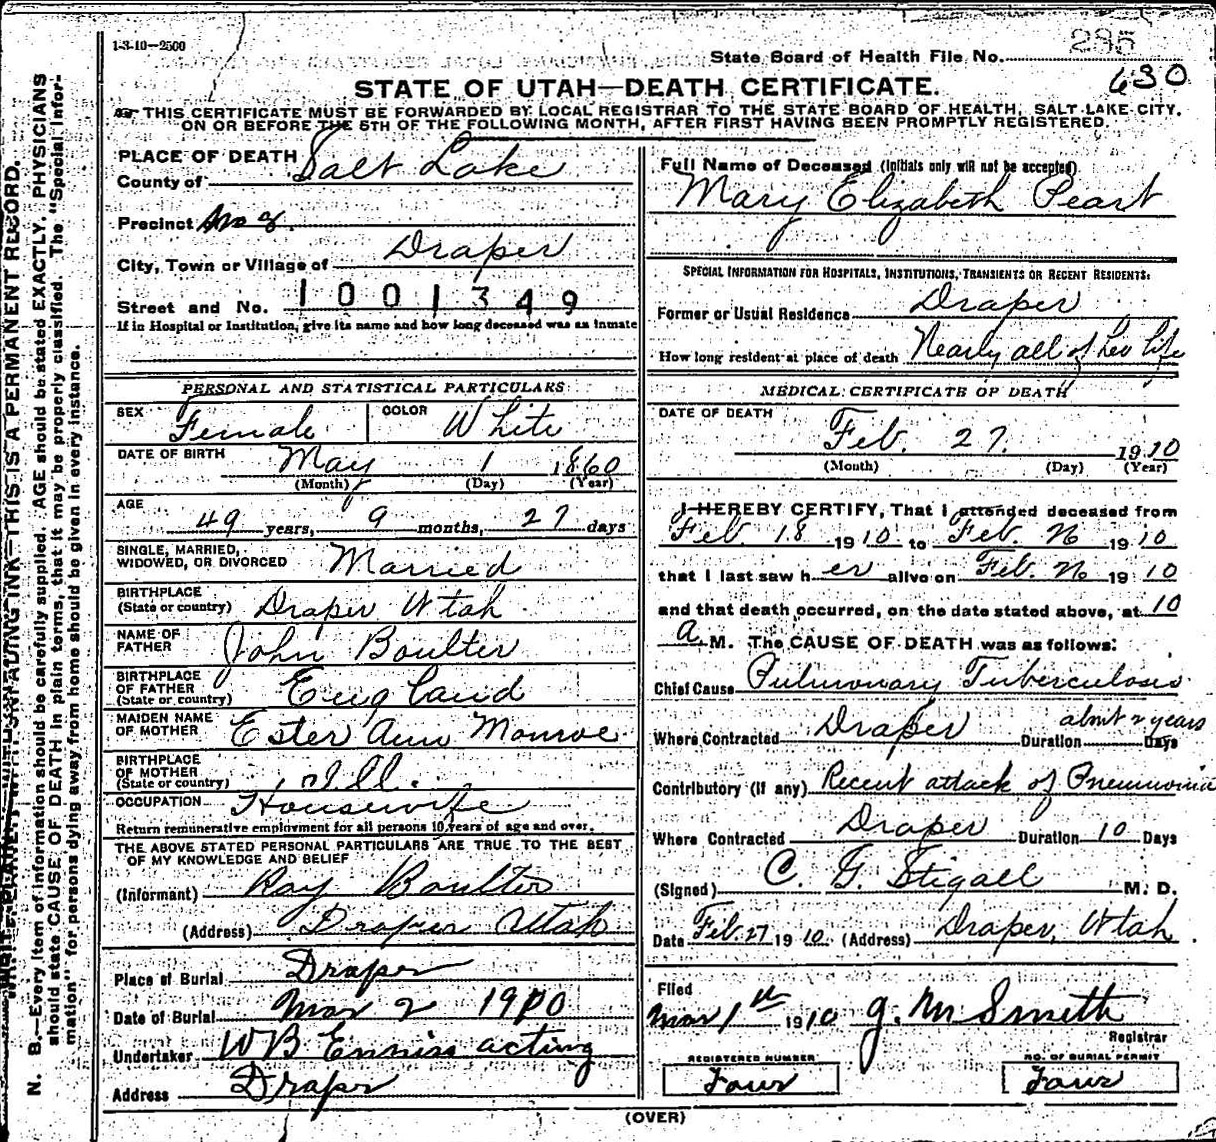 1-3-10—2500
State Board of Health File No. 285
630
STATE OF UTAH—DEATH CERTIFICATE.
THIS CERTIFICATE MUST BE FORWARDED BY LOCAL REGISTRAR TO THE STATE BOARD OF HEALTH, SALT LAKE CITY,
ON OR BEFORE THE 5TH OF THE FOLLOWING MONTH, AFTER FIRST HAVING BEEN PROMPTLY REGISTERED.
PLACE OF DEATH
County of Salt Lake
Precinct No
City, Town or Village of Draper
Street and No. 1001349
If in Hospital or Institution, give its name and how long deceased was an inmate
PERSONAL AND STATISTICAL PARTICULARS
SEX Female COLOR White
DATE OF BIRTH May 1 1860
(Month) (Day) (Year)
AGE 49 years, 9 months, 27 days
SINGLE, MARRIED,
WIDOWED, OR DIVORCED Married
BIRTHPLACE
(State or country) Draper Utah
NAME OF
FATHER John Boulter
BIRTHPLACE
OF FATHER
(State or country) England
MAIDEN NAME
OF MOTHER Ester Ann Monroe
BIRTHPLACE
OF MOTHER
(State or country) Ill.
OCCUPATION Housewife
Return remunerative employment for all persons 10 years of age and over.
THE ABOVE STATED PERSONAL PARTICULARS ARE TRUE TO THE BEST
OF MY KNOWLEDGE AND BELIEF
(Informant) Ray Boulter
(Address) Draper Utah
Place of Burial Draper
Date of Burial Mar 2 1910
Undertaker W B Enniss acting
Address Draper
Full Name of Deceased (Initials only will not be accepted)
Mary Elizabeth Peart
SPECIAL INFORMATION FOR HOSPITALS, INSTITUTIONS, TRANSIENTS OR RECENT RESIDENTS:
Former or Usual Residence Draper
How long resident at place of death Nearly all of her life
MEDICAL CERTIFICATE OF DEATH
DATE OF DEATH
Feb. 27. 1910
(Month) (Day) (Year)
I HEREBY CERTIFY, That I attended deceased from
Feb. 18 1910 to Feb. 26 1910
that I last saw her alive on Feb. 26 1910
and that death occurred, on the date stated above, at 10
a. M. The CAUSE OF DEATH was as follows:
Chief Cause Pulmonary Tuberculosis
Where Contracted Draper Duration about 2 years Days
Contributory (if any) Recent attack of Pneumonia
Where Contracted Draper Duration 10 Days
(Signed) C. G. Stigall M. D.
Date Feb. 27 1910. (Address) Draper, Utah.
Filed
Mar 1st 1910 G. M Smith
Registrar
REGISTERED NUMBER
Four
NO. OF BURIAL PERMIT
Four
(OVER)
THIS IS A PERMANENT RECORD.
N. B.—Every item of information should be carefully supplied. AGE should be stated EXACTLY. PHYSICIANS
should state CAUSE OF DEATH in plain terms, that it may be properly classified. The "Special Infor-
mation" for persons dying away from home should be given in every instance.